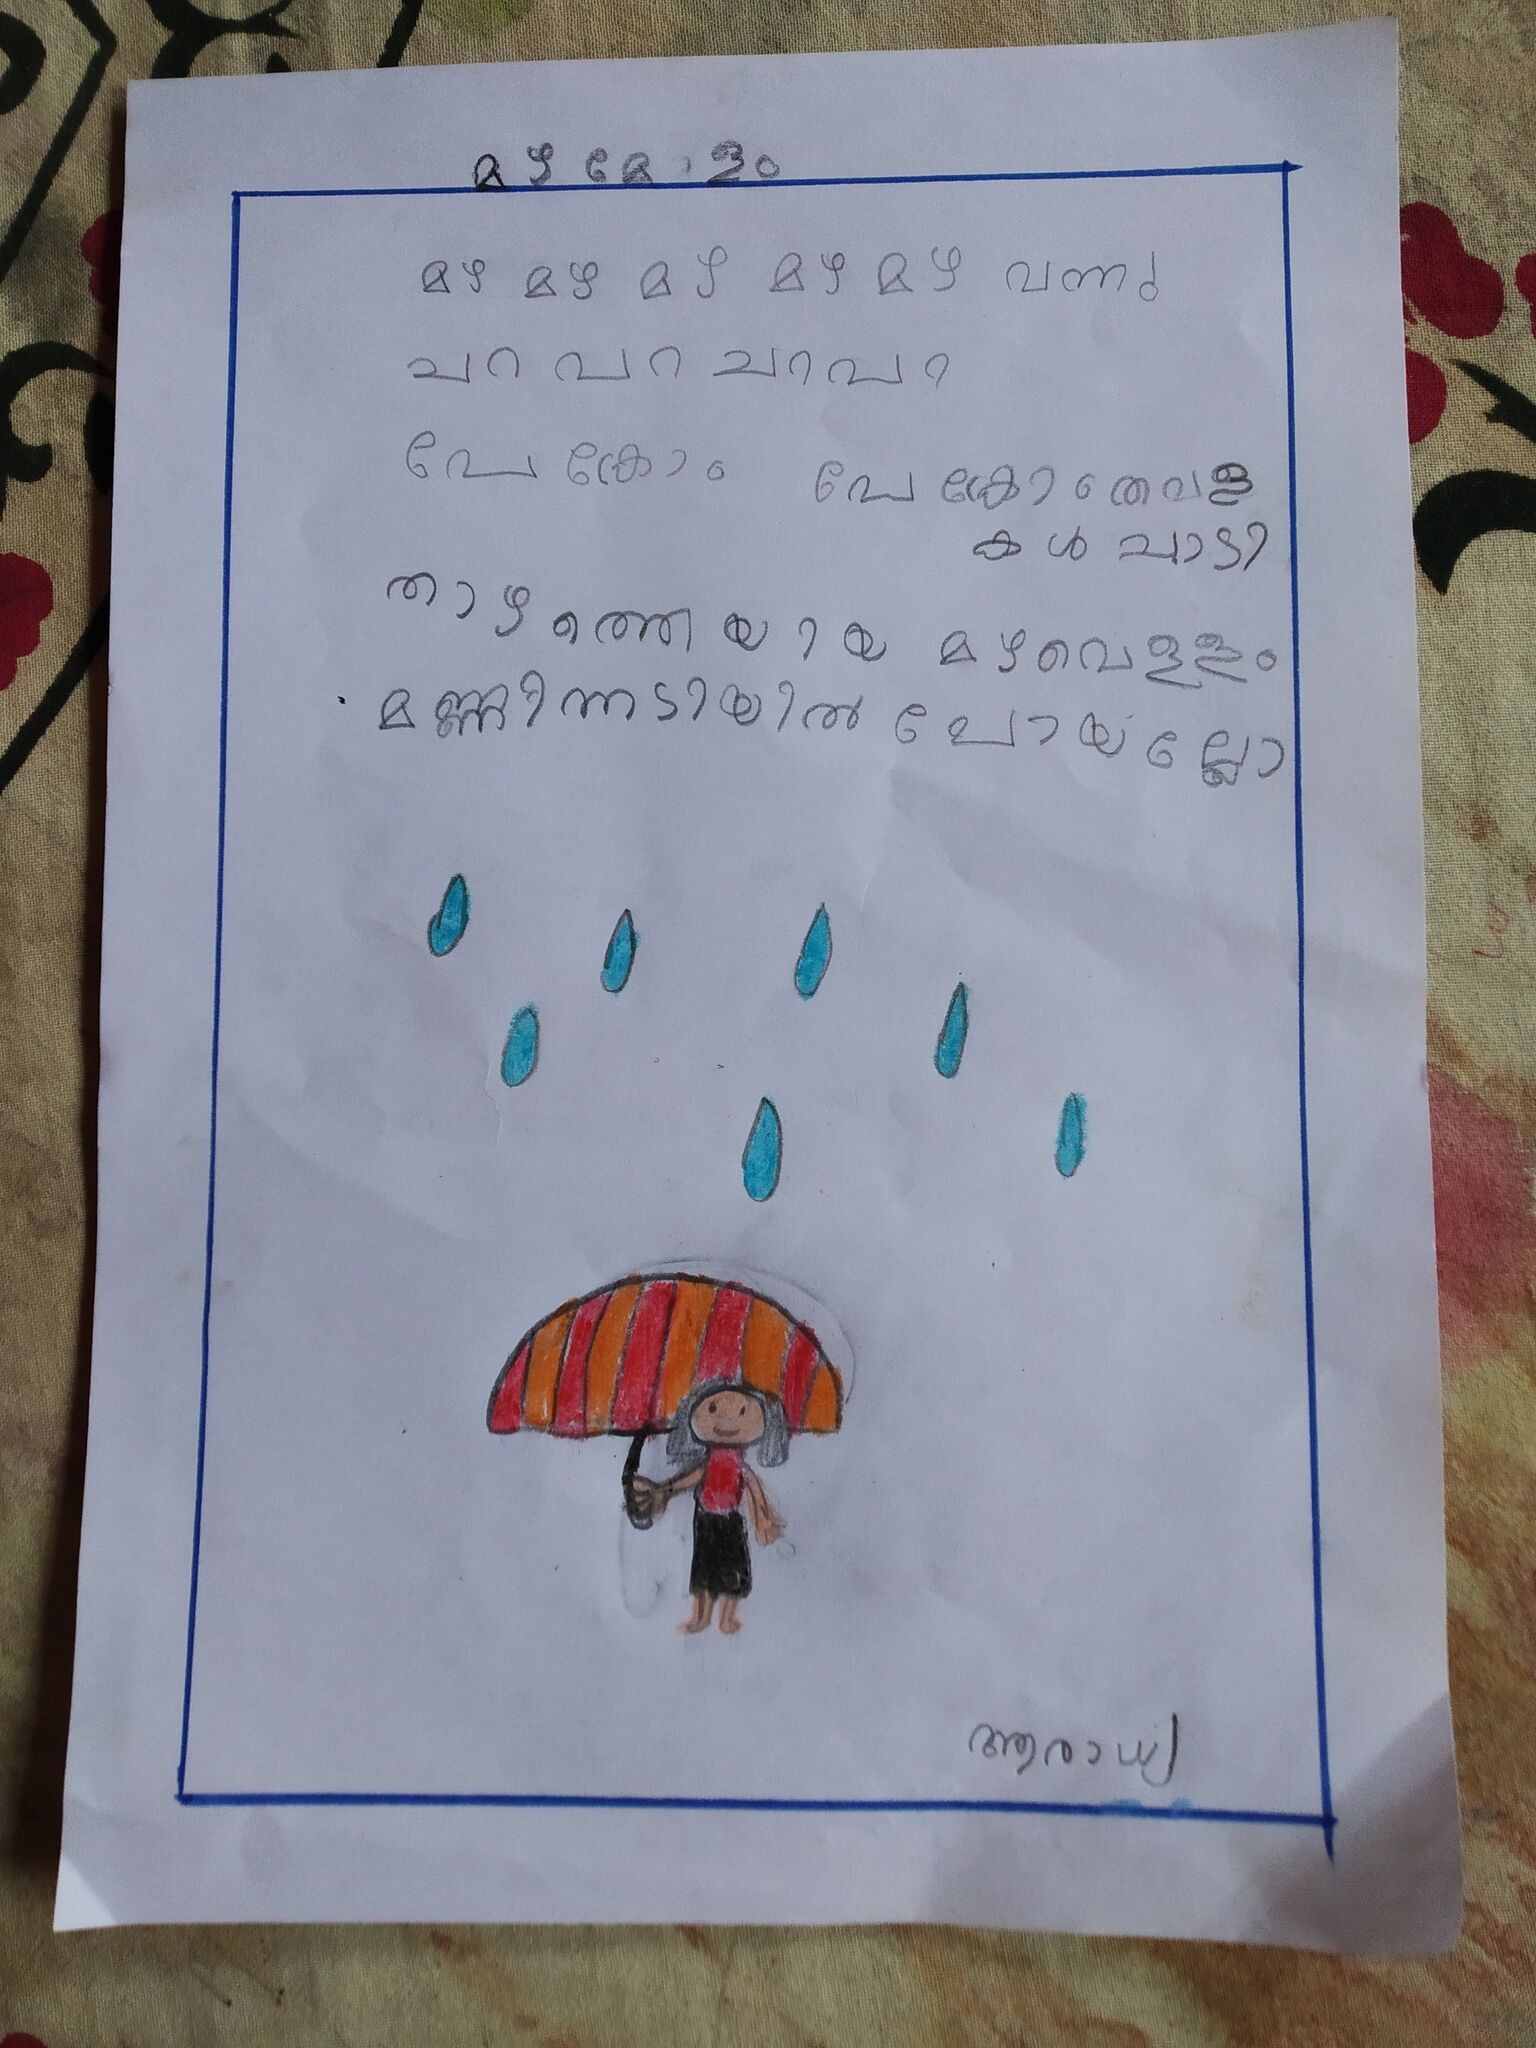 മഴമേളം
മഴ മഴ മഴ മഴ മഴ വന്നു
ചറ പറ ചറപറ
പേക്രോം പേക്രോംതവള
കൾ പാടി
താഴത്തെയായ മഴവെള്ളം
മണ്ണിന്നടിയിൽ പോയല്ലോ